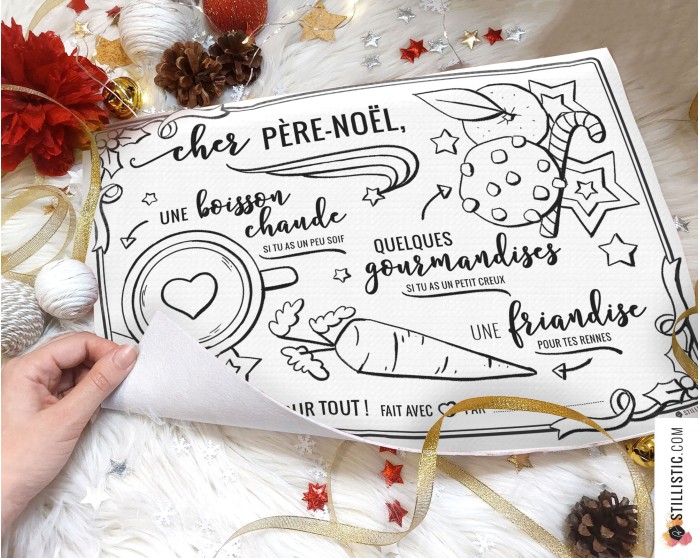 cher PÈRE-NOËL,
UNE boisson
chaude
SI TU AS UN PEU SOIF
QUELQUES
gourmandises
SI TU AS UN PETIT CREUX
UNE friandise
POUR TES RENNES
TOUT ! FAIT AVEC PAR
STILLISTIC.COM